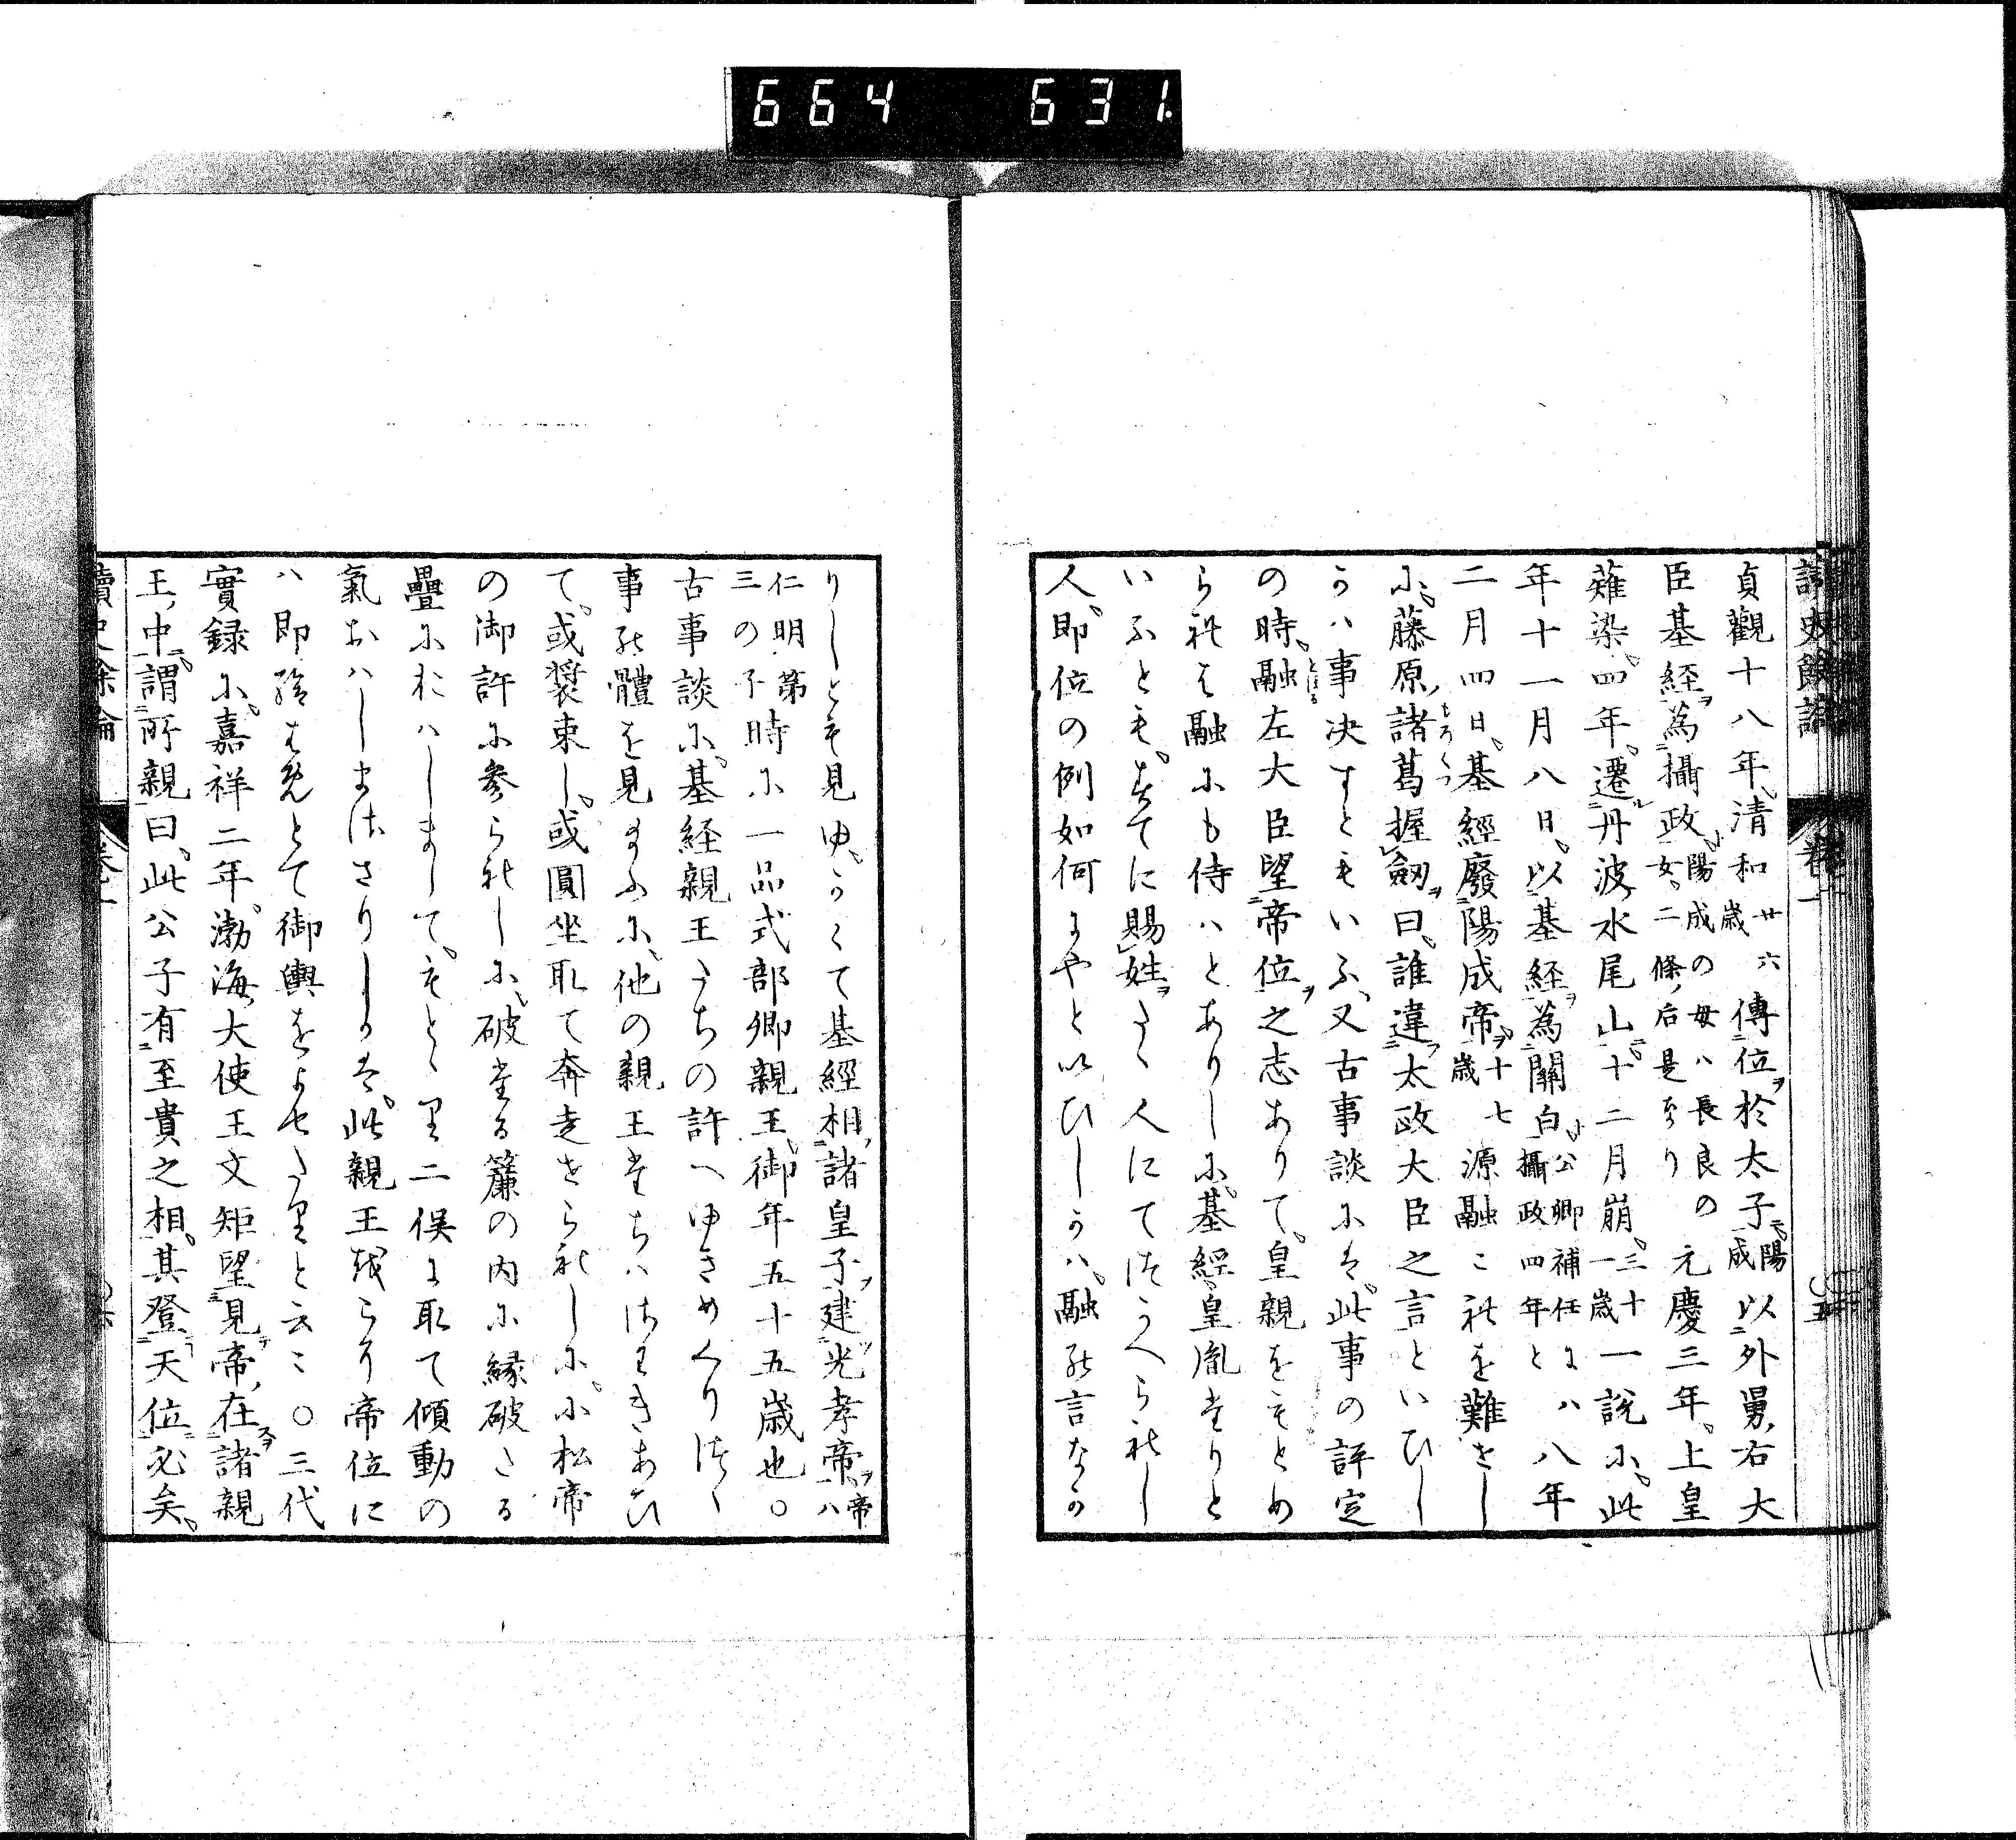 664 631.
讀史餘論 卷一 五
貞觀十八年、清和廿六歳傳位ヲ於太子ニ陽成以外舅、右大
臣基経ヲ為攝政、陽成の母ハ長良の女、二條、后是なり元慶三年。上皇
薙染。四年。遷ル丹波、水尾山ニ十二月崩。三十一歳一説に。此
年十一月八日。以基経ヲ為關白。公卿補任にハ八年攝政四年と八年
二月四日。基經廢陽成帝ヲ十七歳源融これを難せし
に。藤原、諸葛握劔ヲ曰。誰違ヲ太政大臣之言といひし
かハ事決すともいふ、又古事談には。此事の評定
の時。融左大臣望帝位ヲ之志ありて。皇親をもとめ
られは融にも侍ハとありしに。基經。皇胤なりと
いふとも。すてに賜姓ヲたゝ人にてつかへられし
人。即位の例如何にやと以ひしかハ。融の言なか
りしとも見ゆ。かくて基經相、諸皇子ヲ建光孝帝ヲ帝ハ
仁明第三の子時に一品式部卿親王。御年五十五歳也。○
古事談に。基経親王たちの許へゆきめくりつゝ
事の體を見まふに。他の親王たちハさわきあひ
て。或裝束し。或圓坐取て奔走せられしに。小松帝
の御許に参られしに。破たる簾の内に縁破たる
疊におハしまして。もとゝり二俣に取て傾動の
氣おハしまさゝりしかは。此親王越らり帝位に
ハ即給はめとて御輿をよせたりと云こ○三代
實録に。嘉祥二年。渤海、大使王文矩望見帝、在ヲ諸親
王、中ニ謂所親曰。此公子有至貴之相。其登天位必矣。
讀史餘論 卷一